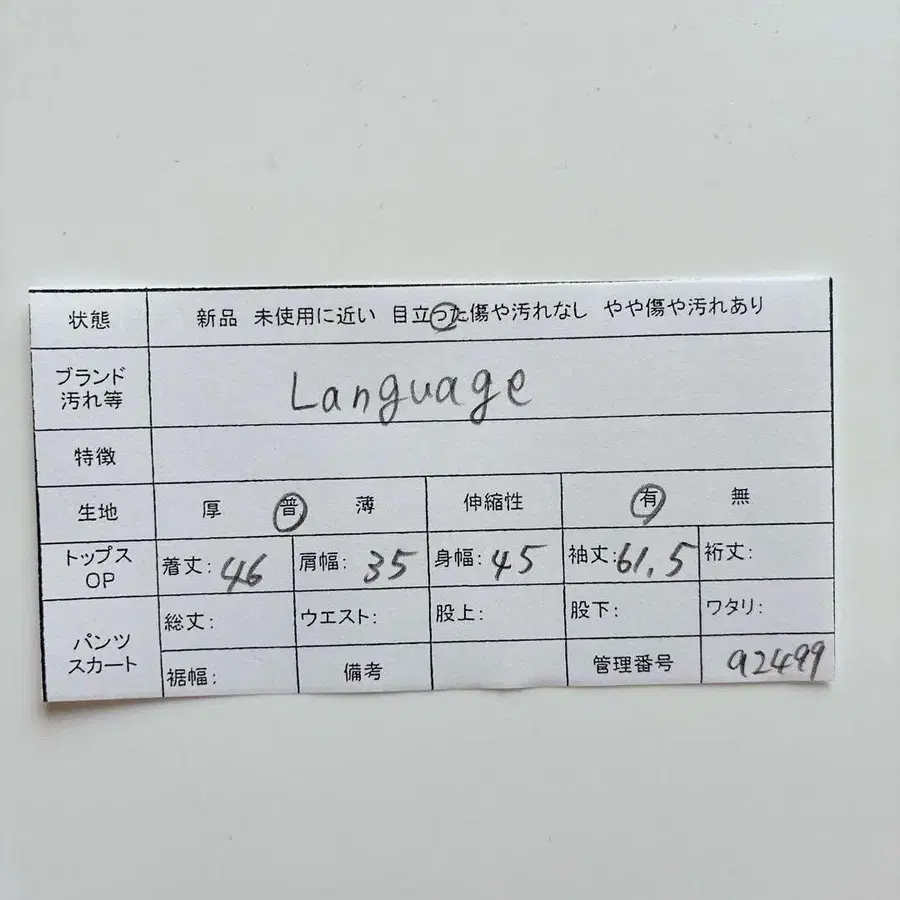 状態 新品 未使用に近い 目立った傷や汚れなし やや傷や汚れあり
ブランド
汚れ等
Language
特徴
生地 厚 普 薄 伸縮性 有 無
トップス
OP
着丈: 46 肩幅: 35 身幅: 45 袖丈: 61.5 裄丈:
パンツ
スカート
総丈: ウエスト: 股上: 股下: ワタリ:
裾幅: 備考 管理番号 a2499